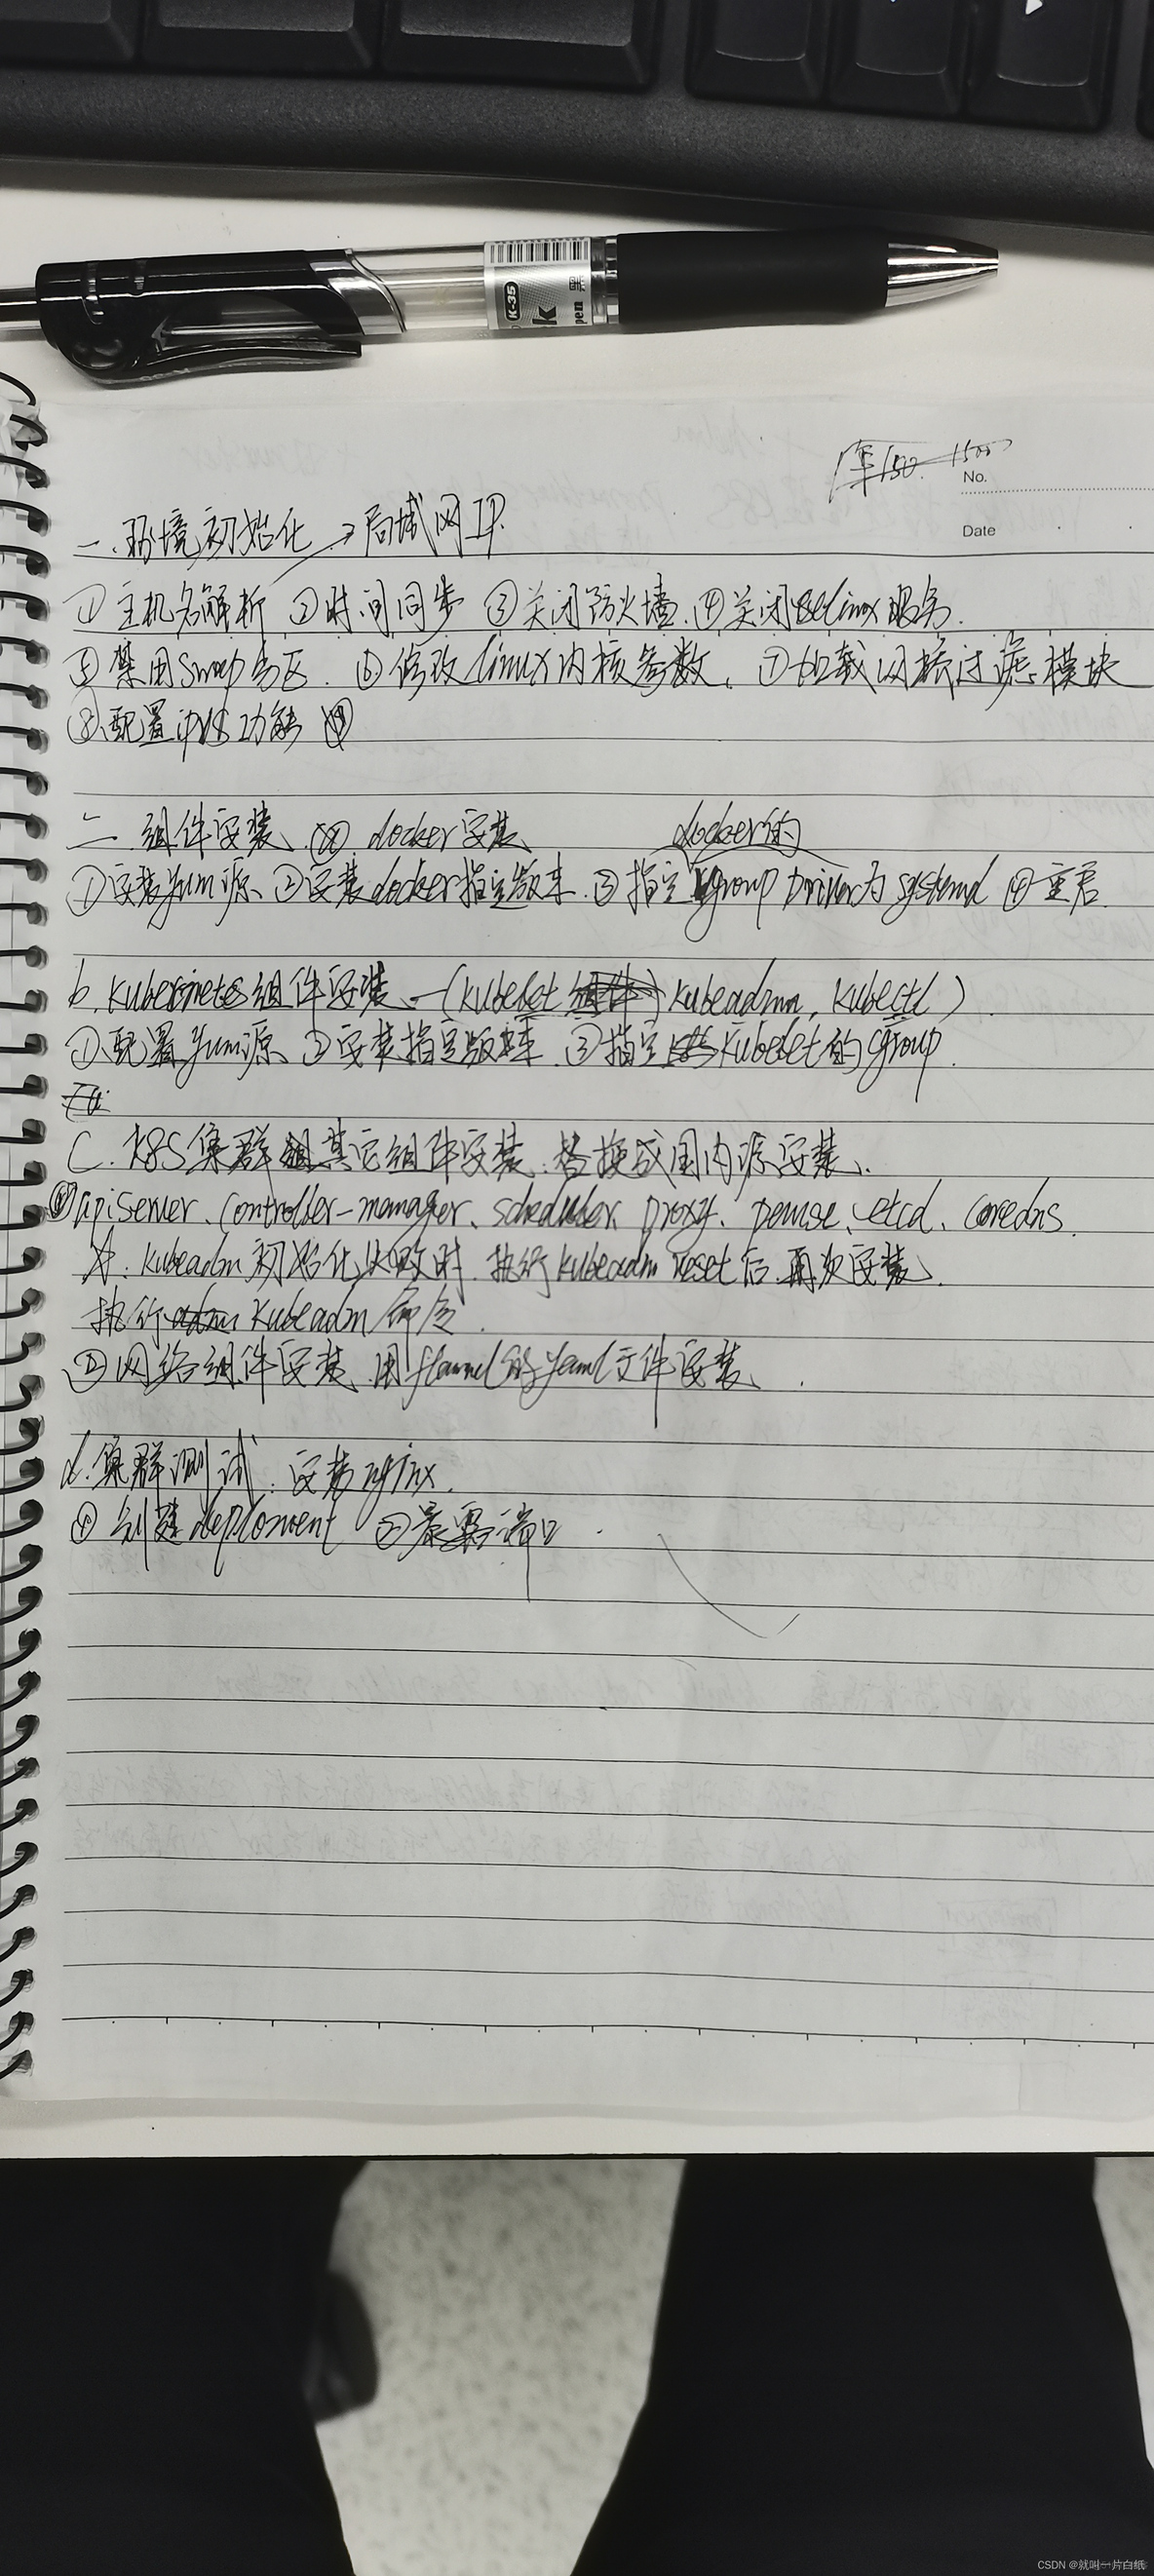 K-35
k
pen
黑
1年150. 1500
No.
Date
一.环境初始化 → 局域网IP.
①主机名解析 ②时间同步 ③关闭防火墙.④关闭selinux服务.
⑤禁用swap分区. ⑥修改linux内核参数. ⑦加载网桥过滤模块
⑧.配置ipvs功能
二.组件安装、 docker安装、 docker的
①安装yum源、②安装docker指定版本.③指定cgroup Driver为systemd ④重启.
b.kubernetes组件安装、—(kubelet 组件) kubeadmn, kubectl)
①.配置yum源、②安装指定版本.③指定kubelet的cgroup.
C. k8S集群组其它组件安装.替换成国内源安装、.
①apiserver、controller-manager、scheduler、proxy、pause、etcd、coredns.
kubeadm初始化失败时.执行kubeadm reset后再次安装、
执行 kubeadm命令.
②网络组件安装.用flannel的yaml文件安装、.
d.集群测试:安装nginx.
①创建deploment ②暴露端口.
CSDN @就叫一片白纸